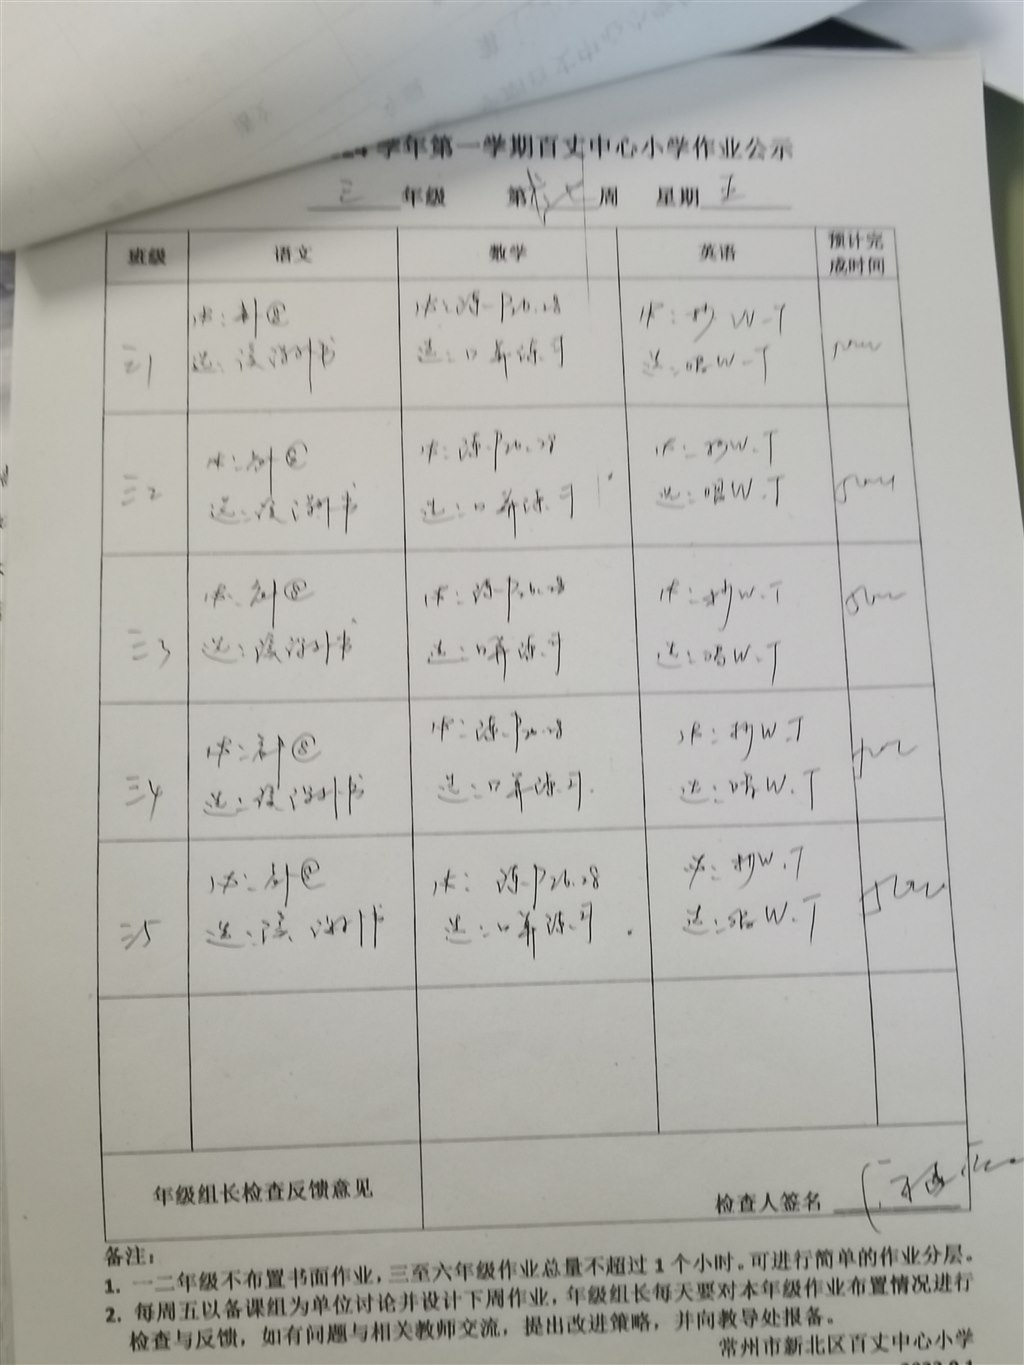 学年第一学期百丈中心小学作业公示
三 年级 第 七 周 星期 五
班级 语文 数学 英语 预计完成时间
三1
必: 补⑧
选: 读课外书
必: 练一P26.28
选: 口算练习
必: 抄W.T
选: 唱W.T
三2
选: 读课外书
必: 练P26.28
选: 口算练习
必: 抄W.T
选: 唱W.T
三3
选: 读课外书
必: 练P26.28
选: 口算练习
必: 抄W.T
选: 唱W.T
三4
选: 读课外书
必: 练P26.28
选: 口算练习.
必: 抄W.T
选: 唱W.T
三5
选: 读课外书
必: 练P26.28
选: 口算练习
必: 抄W.T
选: 唱W.T
年级组长检查反馈意见
检查人签名
备注:
1. 一二年级不布置书面作业,三至六年级作业总量不超过1个小时。可进行简单的作业分层。
2. 每周五以备课组为单位讨论并设计下周作业,年级组长每天要对本年级作业布置情况进行
检查与反馈,如有问题与相关教师交流,提出改进策略,并向教导处报备。
常州市新北区百丈中心小学